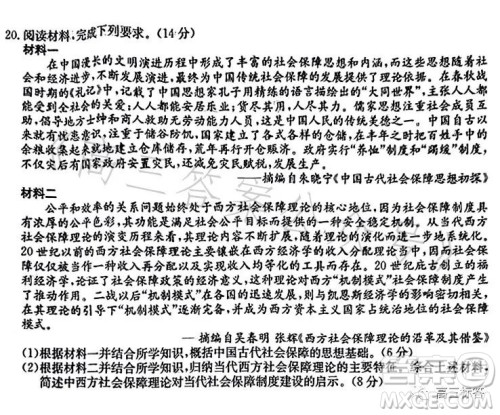 20. 阅读材料,完成下列要求。(14分)
材料一
在中国漫长的文明演进历程中形成了丰富的社会保障思想和内涵,而这些思想随着社
会和经济进步,不断发展演进,最终为中国传统社会保障的发展提供了理论依据。在春秋战
国时期的《礼记》中,记载了中国思想家孔子用精练的语言描绘出的“大同世界”,主张人人都
能受到全社会的关爱;人人都能安居乐业;货尽其用,人尽其力。儒家思想注重社会成员互
助,倡导地方士绅和商人救助无劳动能力人员,这是中国人民的传统美德之一。中国自古以
来就有忧患意识,注重于储谷防饥,国家自建或者民建仓储,在丰年之时把百姓手中的
余粮收集起来以供仓储,荒年再行开仓赈济。政府实行“养恤”制度和“蠲缓”制度,
不仅灾后有国家政府安置灾民,还减免灾民赋税,发展生产。
——摘编自朱晓宁《中国古代社会保障思想初探》
材料二
公平和效率的关系问题始终处于西方社会保障理论的核心地位,因为社会保障制度具
有浓厚的公平色彩,其功能是满足社会公平目标而提供的一种安全稳定机制。从当代西方
社会保障理论的演变历程来看,其理论内容不断扩展,随着理论的演化而进一步地系统化。
20世纪以前的社会保障理论主要镶嵌在西方经济学的收入分配理论当中,因而社会保
障仅仅被当作一种收入再分配以及实现收入均等化的工具而存在。20世纪庇古创立的福
利经济学,论证了社会保障政策的经济意义,其中大部分“机制模式”对社会保障制度产生
了推动作用。二战以后“机制模式”在各国的迅速发展,则与凯恩斯经济学的影响密切相关,
在其理论的引导下“机制模式”逐渐完备,并成为西方资本主义国家占统治地位的社会保障
制度。
——摘编自吴春明 张辉《西方社会保障理论的沿革及其借鉴》
(1)根据材料一并结合所学知识,概括中国古代社会保障的思想基础。(6分)
(2)根据材料二并结合所学知识,归纳当代西方社会保障理论的主要特征。综合上述材料,
简述中西方社会保障理论对当代社会保障制度建设的启示。(8分)